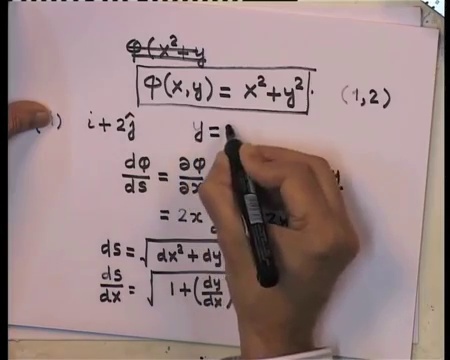 φ(x²+y
φ(x,y) = x²+y².
(1,2)
i+2ĵ y =
dφ/ds = ∂φ/∂x
= 2x 2y
ds = √dx²+dy
ds/dx = √1+(dy/dx)